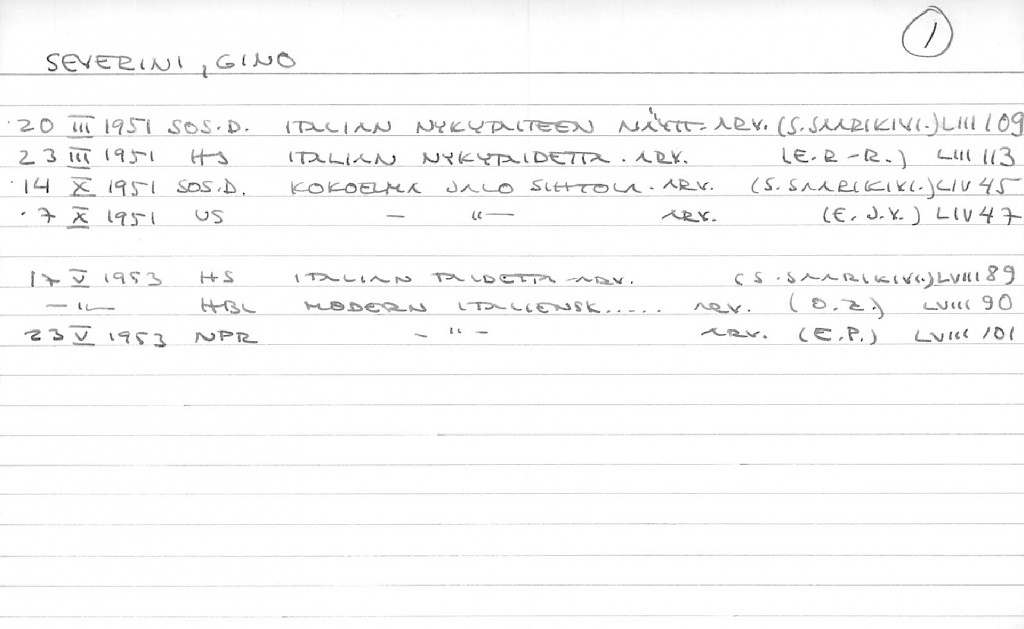 1
SEVERINI, GINO
20 III 1951 SOS.D. ITALIAN NYKYTAITEEN NÄYTT. ARV. (S.SAARIKIVI.) LIII 109
23 III 1951 HS ITALIAN NYKYTAIDETTA. ARV. (E.R-R.) LIII 113
14 X 1951 SOS.D. KOKOELMA JALO SIHTOLA. ARV. (S.SAARIKIVI.) LIV 45
7 X 1951 US — " — ARV. (E.J.V.) LIV 47
17 V 1953 HS ITALIAN TAIDETTA ARV. (S.SAARIKIVI.) LVIII 89
— " — HBL MODERN ITALIENSK..... ARV. (O.Z.) LVIII 90
23 V 1953 NPR - " - ARV. (E.P.) LVIII 101